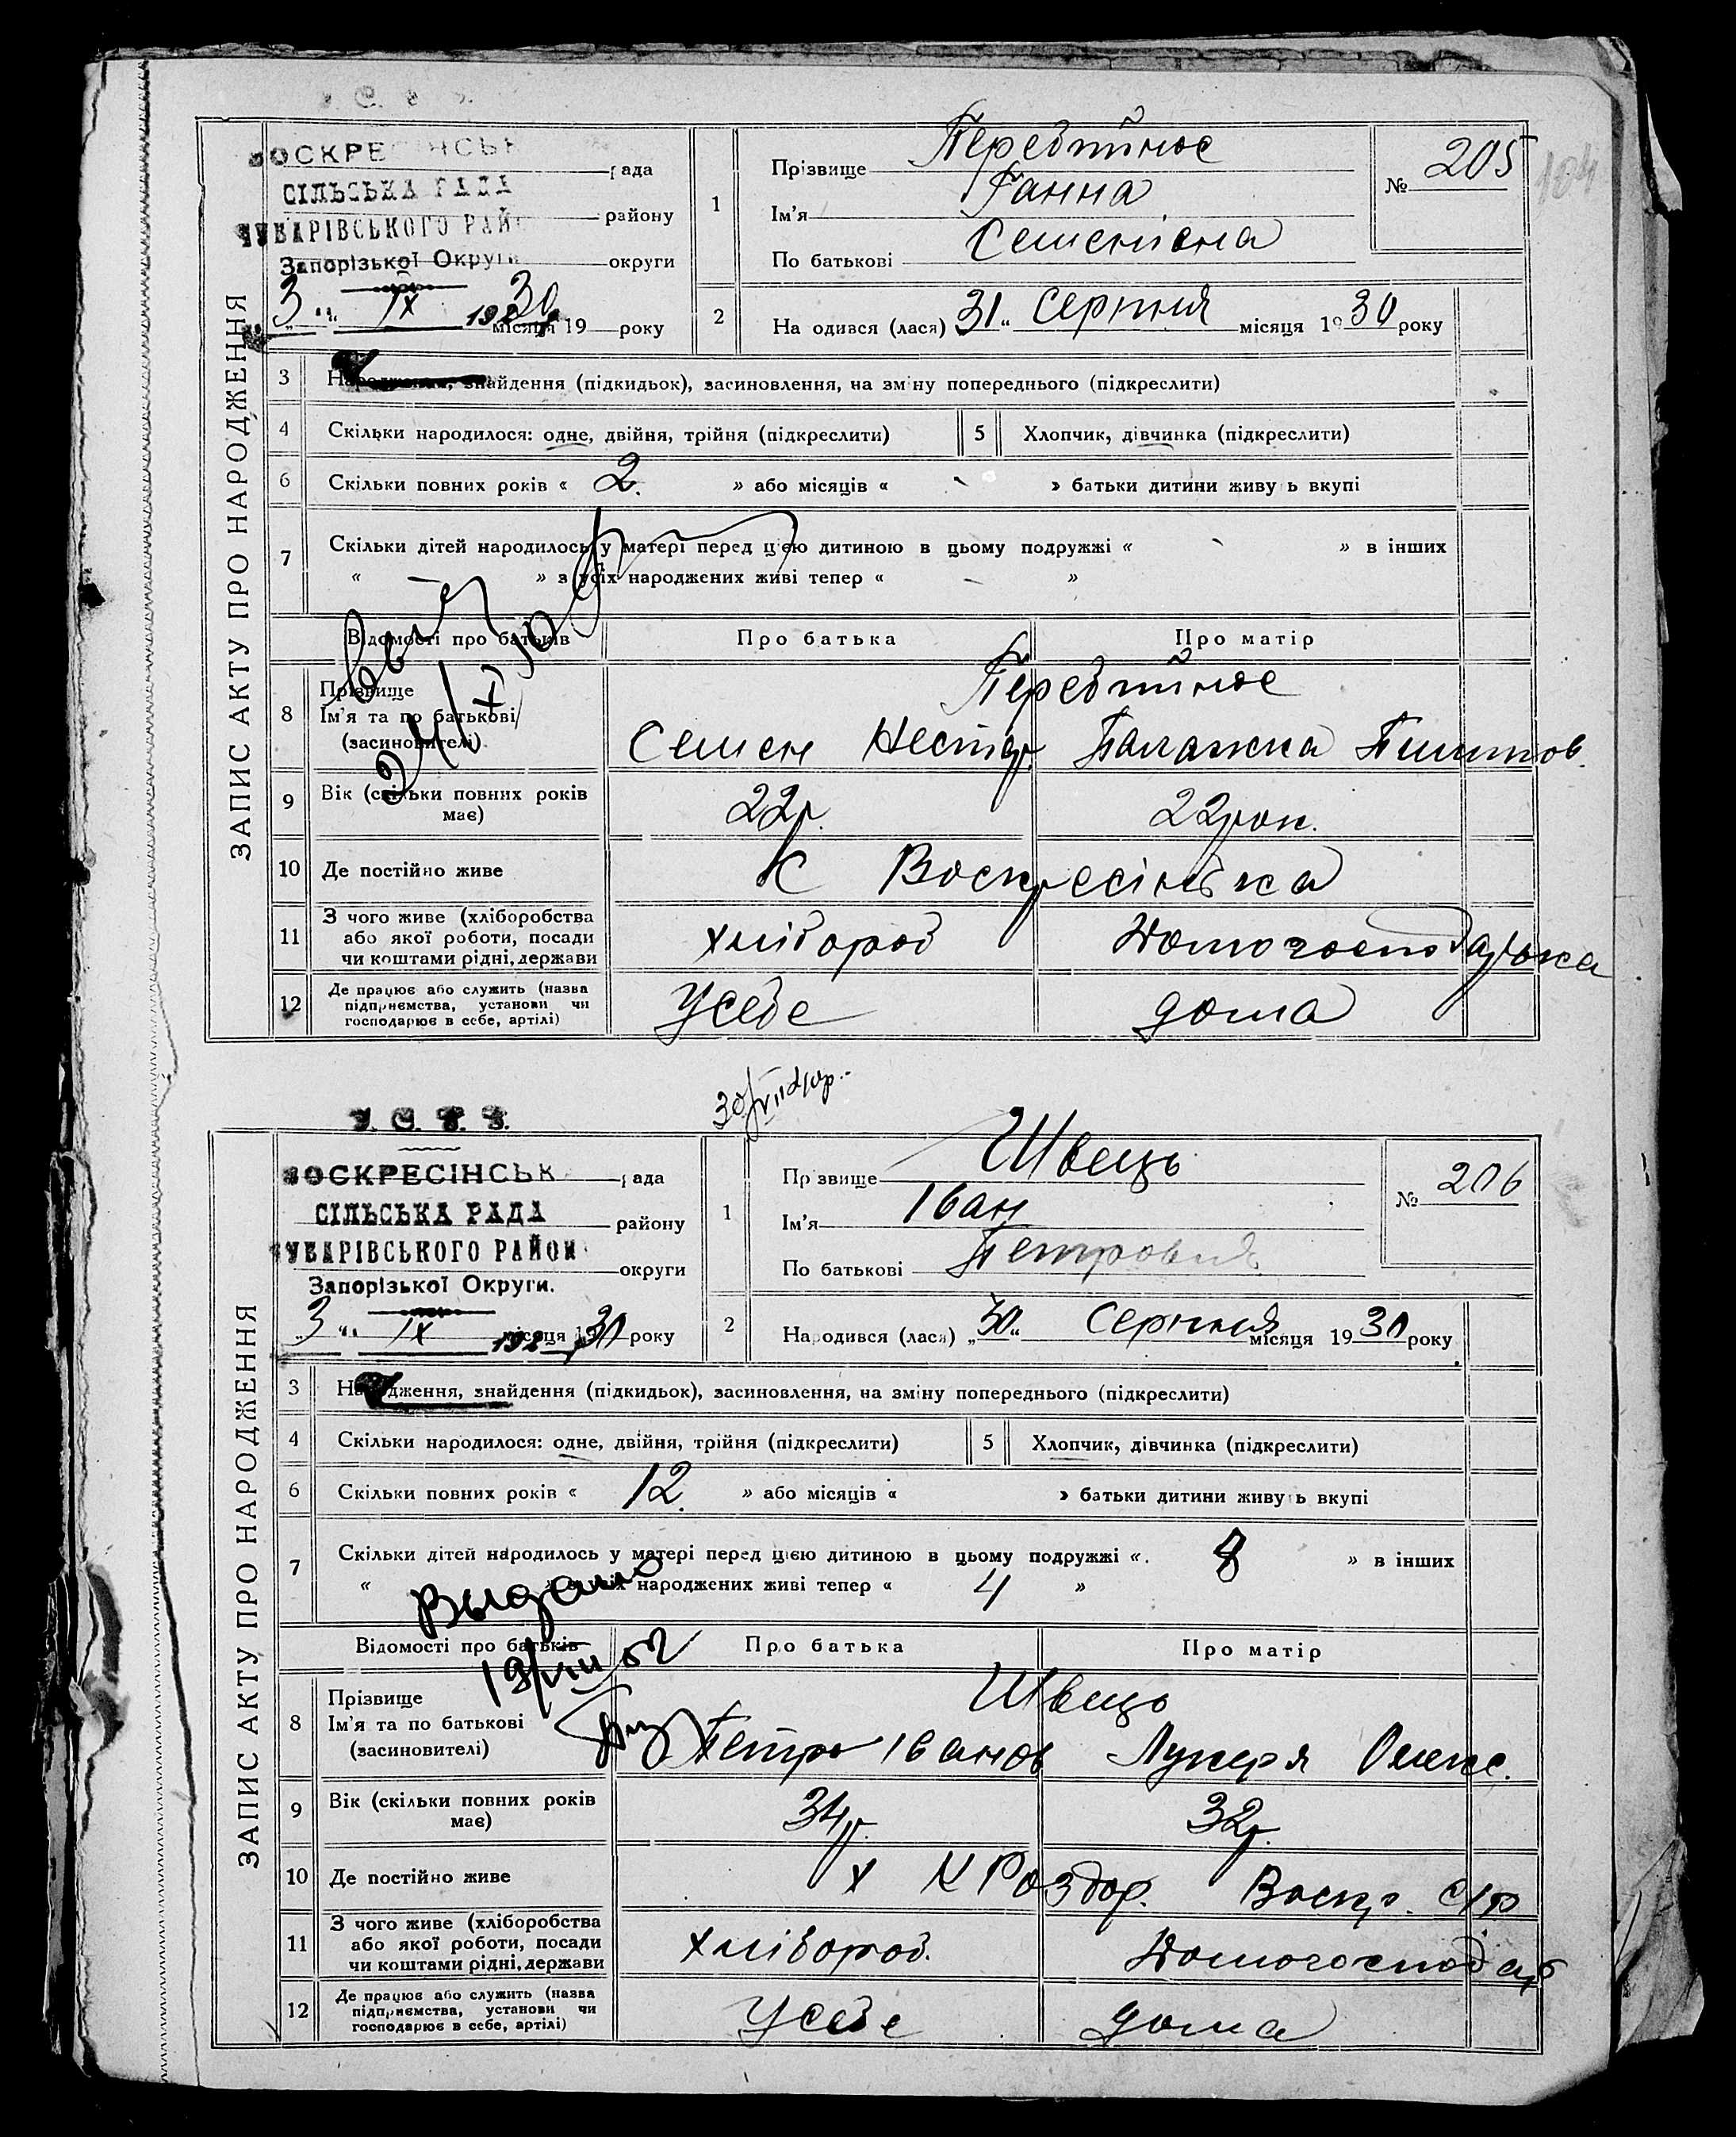 У. С. Р. Р.
ВОСКРЕСІНСЬК рада
СІЛЬСЬКА РАДА
ЧУБАРІВСЬКОГО РАЙО району
Запорізької Округи округи
3 " IX 1930 місяця 19 року
ЗАПИС АКТУ ПРО НАРОДЖЕННЯ
1
Прізвище
Ім'я Ганна
По батькові Семенівна
№ 205
104
2 На одився (лася) 31 " Серпня місяця 1930 року
3 Народження, знайдення (підкидьок), засиновлення, на зміну попереднього (підкреслити)
4 Скільки народилося: одне, двійня, трійня (підкреслити) 5 Хлопчик, дівчинка (підкреслити)
6 Скільки повних років « 2. » або місяців « - » батьки дитини живу ь вкупі
7 Скільки дітей народилось у матері перед цією дитиною в цьому подружжі « - » в інших
« » з усіх народжених живі тепер « - »
Відомості про батьків Про батька Про матір
8 Прізвище
Ім'я та по батькові
(засиновителі) Семен Нестор. Палажка Пилипов.
9 Вік (скільки повних років має) 22р. 22рок.
10 Де постійно живе С Воскресінівка
11 З чого живе (хліборобства або якої роботи, посади чи коштами рідні, держави хлібороб Домогосподарька
12 Де працює або служить (назва підприємства, установи чи господарює в себе, артілі) Усебе дома
У. С. Р. Р.
ВОСКРЕСІНСЬК рада
СІЛЬСЬКА РАДА району
ЧУБАРІВСЬКОГО РАЙОН
Запорізької Округи. округи
3 " IX 192 місяця 1930 року
ЗАПИС АКТУ ПРО НАРОДЖЕННЯ
1
Пр звище Швець
Ім'я Іван
По батькові Петрович
№ 206
2 Народився (лася) „30" Серпня місяця 1930 року
3 Народження, знайдення (підкидьок), засиновлення, на зміну попереднього (підкреслити)
4 Скільки народилося: одне, двійня, трійня (підкреслити) 5 Хлопчик, дівчинка (підкреслити)
6 Скільки повних років « 12. » або місяців « » батьки дитини живуть вкупі
7 Скільки дітей народилось у матері перед цією дитиною в цьому подружжі « 8 » в інших
« » з усіх народжених живі тепер « 4 »
Выдано
19/VIII 52
Відомості про батьків Про батька Про матір
8 Прізвище Швець
Ім'я та по батькові
(засиновителі) Петро Іванов Лукеря Олекс.
9 Вік (скільки повних років має) 34р. 32р.
10 Де постійно живе х Н Роздор. Воскр. С/р
11 З чого живе (хліборобства або якої роботи, посади чи коштами рідні, держави Хлібороб. Домогосподар
12 Де працює або служить (назва підприємства, установи чи господарює в себе, артілі) Усебе дома